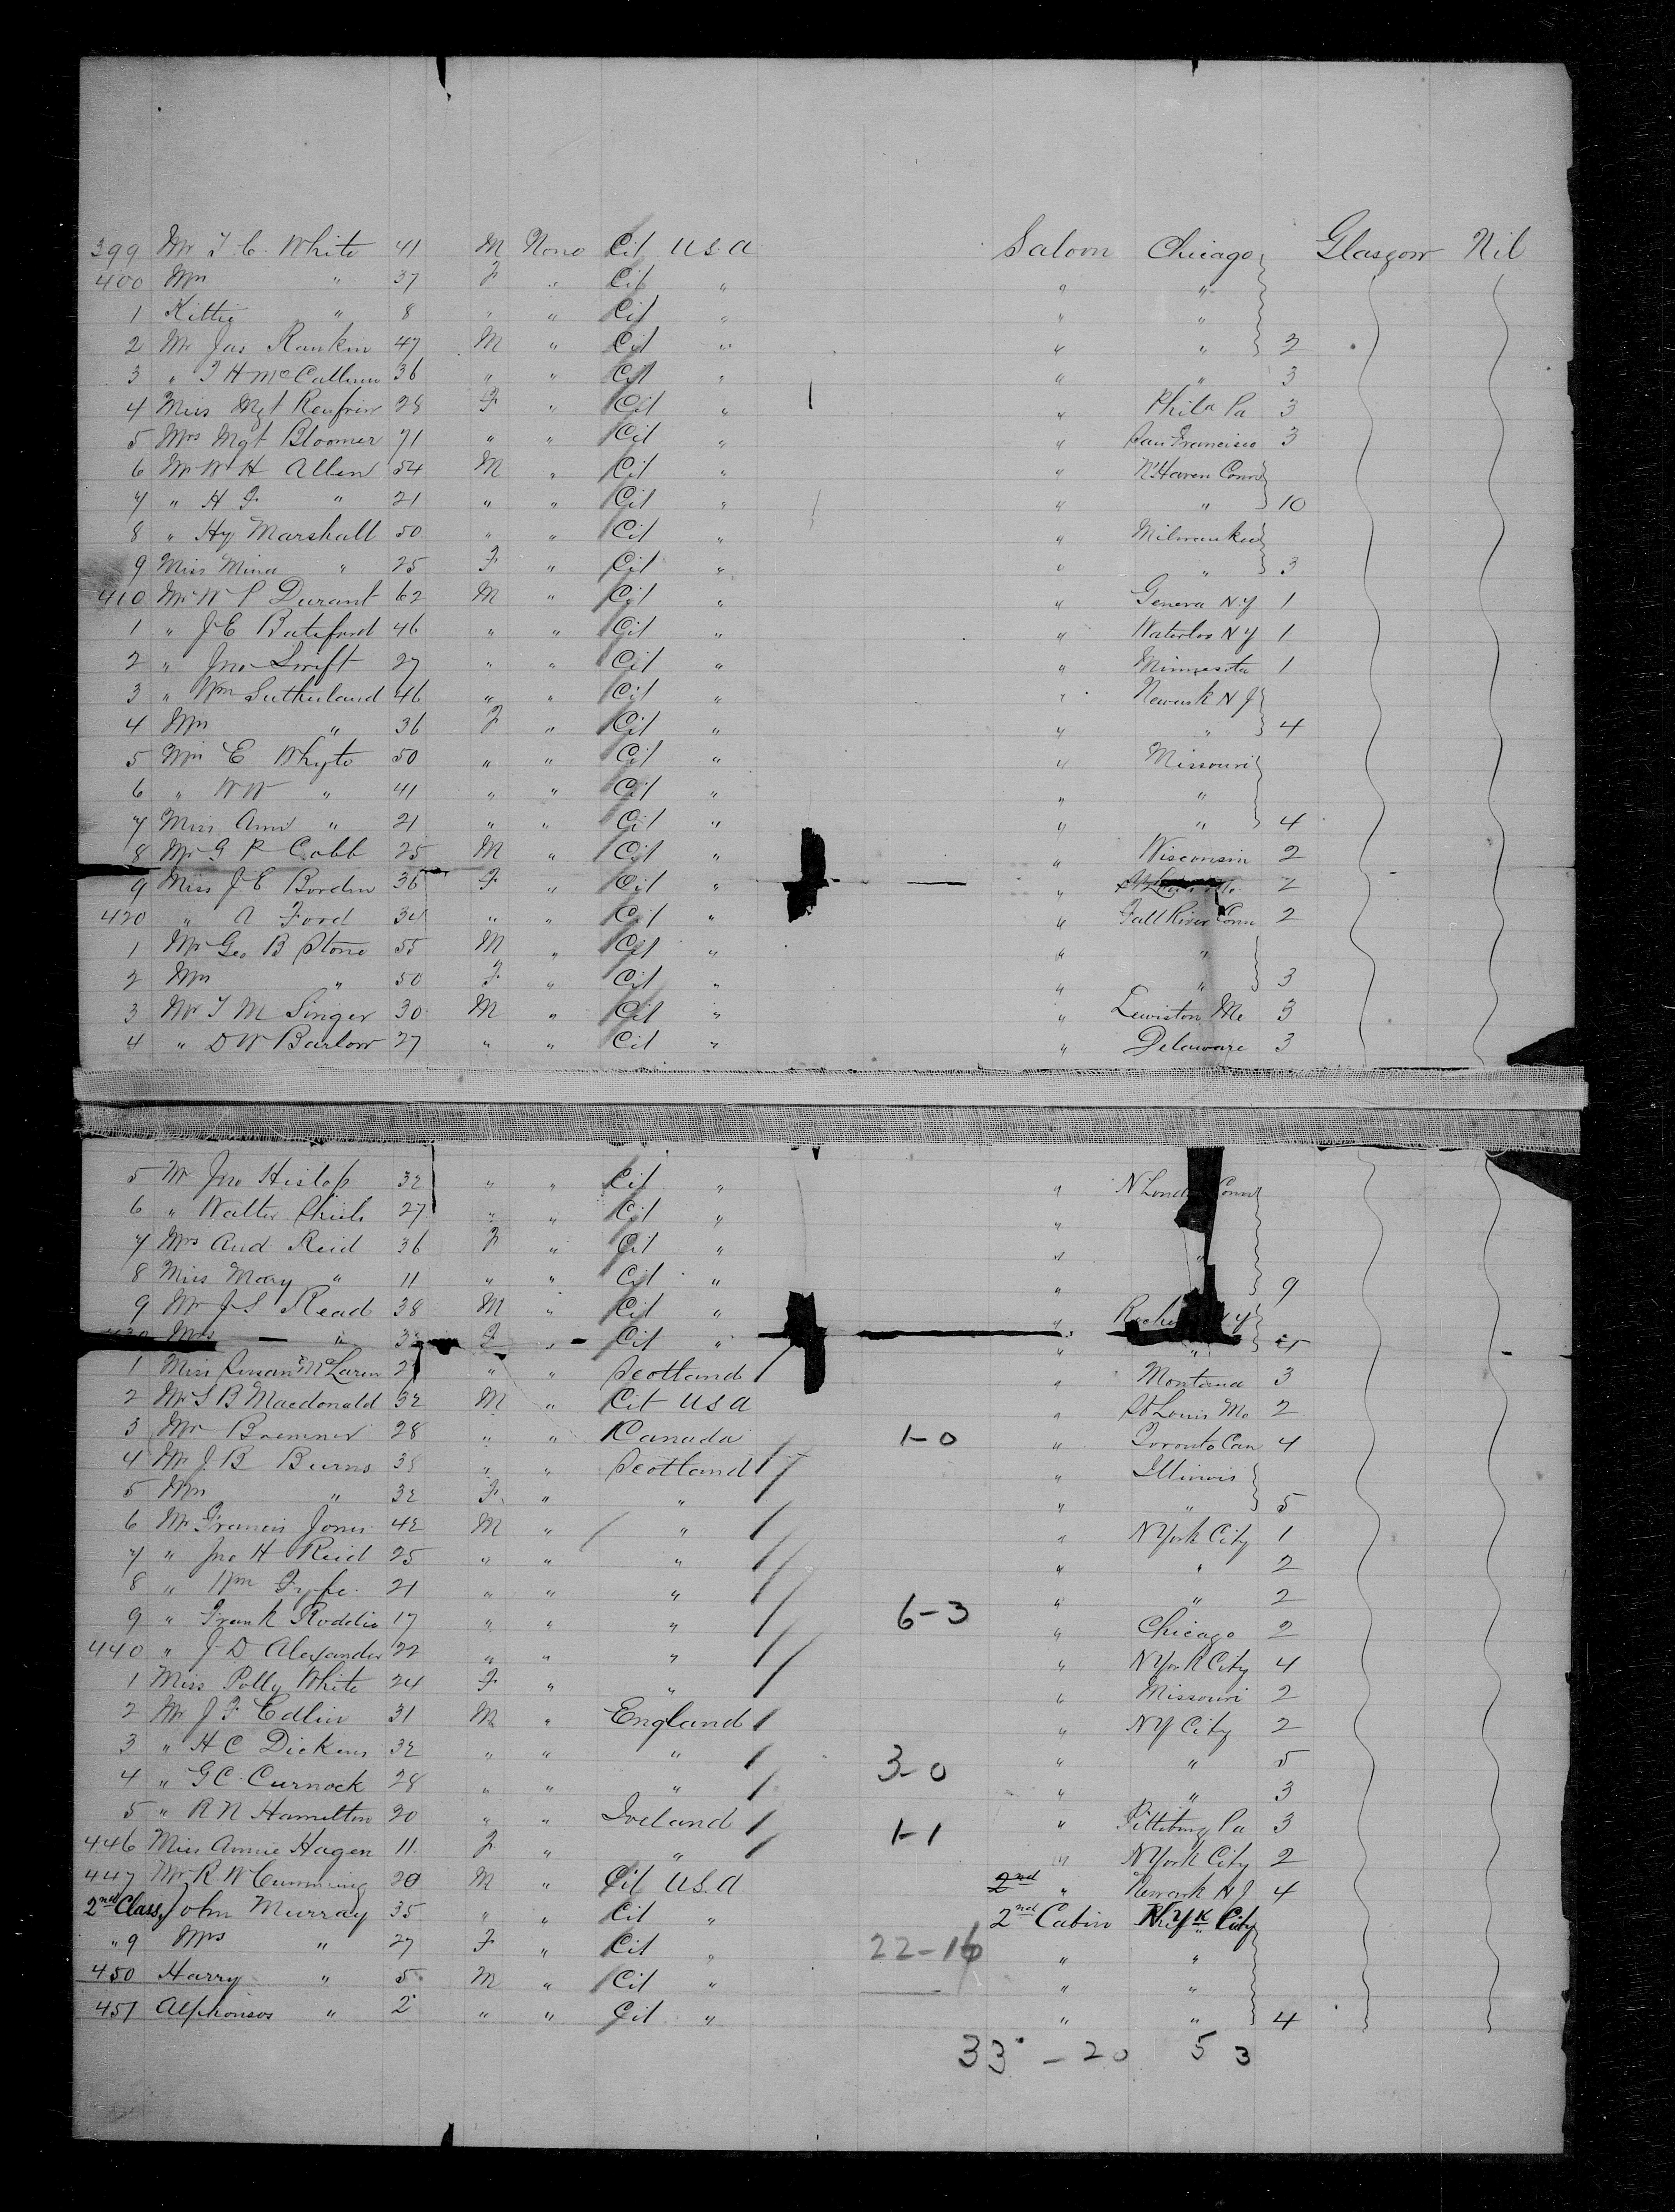 399 Mr T. C. White 41 M None Cit U.S.A Saloon Chicago Glasgow Nil
400 Mrs " 37 F " Cit " " "
1 Kittie " 8 " " Cit " " "
2 Mr Jas Rankin 47 M " Cit " " " 2
3 " T H McCallum 36 " " Cit " " " 3
4 Miss Mgt Renfrew 28 F " Cit " " Phila Pa 3
5 Mrs Mgt Bloomer 71 " " Cit " " San Francisco 3
6 Mr W H Allen 54 M " Cit " " N'Haven Conn
7 " H F " 21 " " Cit " " " 10
8 " Hy Marshall 50 " " Cit " " Milwaukee
9 Miss Mina " 25 F " Cit " " " 3
410 Mr W P Durant 62 M " Cit " " Geneva N.Y 1
1 " J E Batsford 46 " " Cit " " Waterloo N Y 1
2 " Jno Swift 27 " " Cit " " Minnesota 1
3 " Wm Sutherland 46 " " Cit " " Newark N J
4 Mrs " 36 F " Cit " " " 4
5 Mrs E Whyte 50 " " Cit " " Missouri
6 " W W " 41 " " Cit " " "
7 Miss Ann " 21 " " Cit " " " 4
8 Mr G R Cobb 25 M " Cit " " Wisconsin 2
9 Miss J E Borden 36 F " Cit " " 2
420 " A Ford 34 " " Cit " " Fall River Conn 2
1 Mr Geo B Stone 55 M " Cit " " "
2 Mrs " 50 F " Cit " " " 3
3 Mr T M Singer 30 M " Cit " " Lewiston Me 3
4 " D W Barlow 27 " " Cit " " Delaware 3
5 Mr Jno Hislop 32 " " Cit " " N Lond Conn
6 " Walter 27 " " Cit " "
7 Mrs And. Reid 36 F " Cit " " "
8 Miss Mary " 11 " " Cit " " 9
9 Mr J S Read 38 M " Cit " " Y
Mrs " F " Cit " " "
1 Miss Susan McLaren 2 " " Scotland " Montana 3
2 Mr S B Macdonald 32 M " Cit U S A " St Louis Mo 2
3 Mr Bremner 28 " " Canada 1-0 " Toronto Can 4
4 Mr J. B Burns 38 " " Scotland " Illinois
5 Mrs " 32 F " " " " 5
6 Mr Francis Jones 42 M " " " N York City 1
7 " Jno H Reid 25 " " " " " 2
8 " Wm Fyfe 21 " " " " " 2
9 " Frank Roddie 17 " " " 6-3 " Chicago 2
440 " J D Alexander 22 " " " " N York City 4
1 Miss Polly White 24 F " " " Missouri 2
2 Mr J F Edlin 31 M " England " N Y City 2
3 " H C Dickens 32 " " " 3-0 " " 5
4 " G C Curnock 28 " " " " " 3
5 " R N Hamilton 20 " " Ireland 1-1 " Pittsburg Pa 3
446 Miss Annie Hagen 11 F " " " N York City 2
447 Mr R W Cumming 20 M " Cit U.S.A 2nd " Newark N J 4
2nd Class John Murray 35 " " Cit " 2nd Cabin N. Yk City
" 9 Mrs " 27 F " Cit " 22-16 " "
450 Harry " 5 M " Cit " " "
451 Alphonsos " 2 " " Cit " " " 4
33 - 20 53